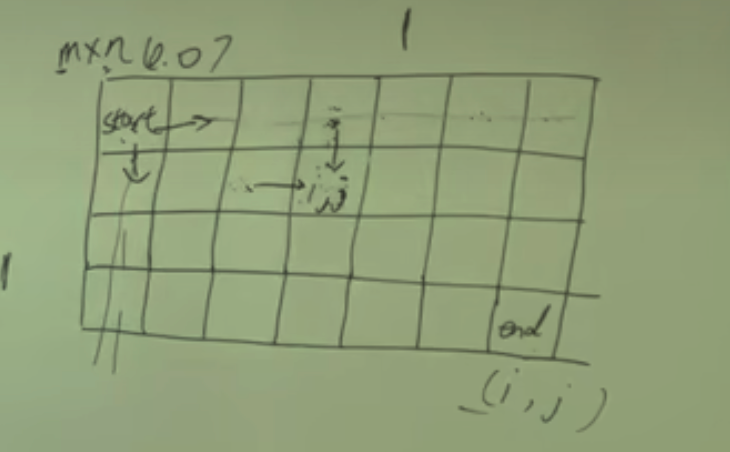 1
m×n
start
i,j
1
end
(i, j)